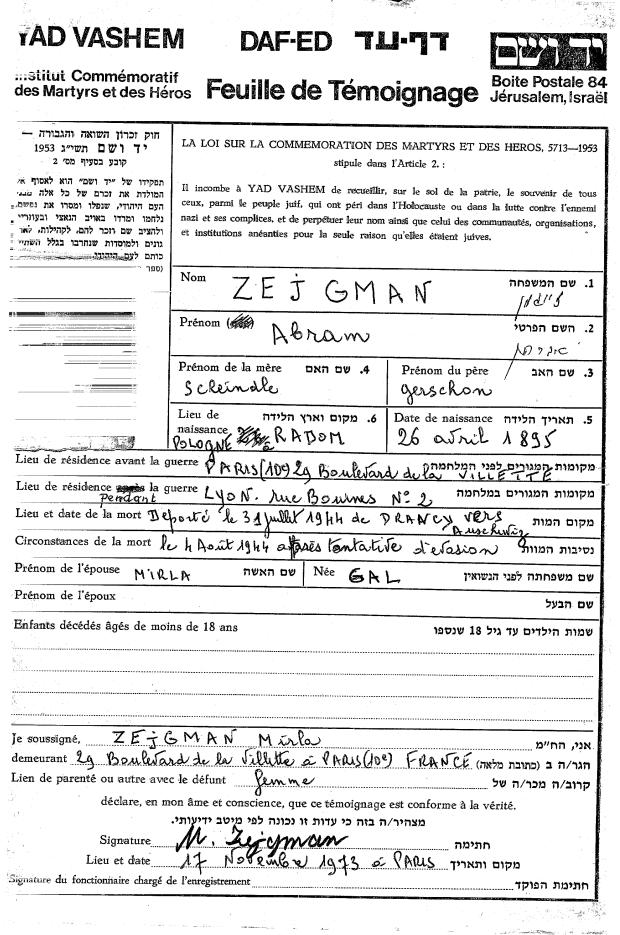 YAD VASHEM
DAF-ED דף-עד
יד ושם
Institut Commémoratif
des Martyrs et des Héros
Feuille de Témoignage
Boite Postale 84
Jérusalem, Israël
חוק זכרון השואה והגבורה —
יד ושם תשי"ג 1953
קובע בסעיף מס' 2
תפקידו של "יד ושם" הוא לאסוף
המולדת את זכרם של כל אלה
העם היהודי, שנפלו ומסרו את נפשם
נלחמו ומרדו באויב הנאצי ובעוזריו
ולהציב שם וזכר להם, לקהילות,
גונים ולמוסדות שנחרבו בגלל
כותם לעם היהודי
LA LOI SUR LA COMMEMORATION DES MARTYRS ET DES HEROS, 5713—1953
stipule dans l'Article 2. :
Il incombe à YAD VASHEM de recueillir, sur le sol de la patrie, le souvenir de tous
ceux, parmi le peuple juif, qui ont péri dans l'Holocauste ou dans la lutte contre l'ennemi
nazi et ses complices, et de perpétuer leur nom ainsi que celui des communautés, organisations,
et institutions anéanties pour la seule raison qu'elles étaient juives.
Nom ZEJGMAN 1. שם המשפחה
Prénom Abram 2. השם הפרטי
Prénom de la mère 4. שם האם
Scheindle
Prénom du père 3. שם האב
gerschon
Lieu de naissance 6. מקום וארץ הלידה
POLOGNE à RADOM
Date de naissance 5. תאריך הלידה
26 avril 1895
Lieu de résidence avant la guerre PARIS (10e) 29 Boulevard de la VILLETTE מקומות המגורים לפני המלחמה
Lieu de résidence pendant la guerre LYON. rue Bournes No 2 מקומות המגורים במלחמה
Lieu et date de la mort Deporté le 31 juillet 1944 de DRANCY vers Auschwitz מקום המות
Circonstances de la mort le 4 Août 1944 après tentative d'evasion נסיבות המוות
Prénom de l'épouse MIRLA שם האשה Née GAL שם משפחתה לפני הנשואין
Prénom de l'époux שם הבעל
Enfants décédés âgés de moins de 18 ans שמות הילדים עד גיל 18 שנספו
Je soussigné, ZEJGMAN Mirla אני, הח"מ
demeurant 29 Boulevard de la Villette à PARIS (10e) FRANCE הגר/ה ב (כתובת מלאה)
Lien de parenté ou autre avec le défunt femme קרוב/ה מכר/ה של
déclare, en mon âme et conscience, que ce témoignage est conforme à la vérité.
מצהיר/ה בזה כי עדות זו נכונה לפי מיטב ידיעותי.
Signature M. Zejgman חתימה
Lieu et date 17 Novembre 1973 à PARIS מקום ותאריך
Signature du fonctionnaire chargé de l'enregistrement חתימת הפוקד